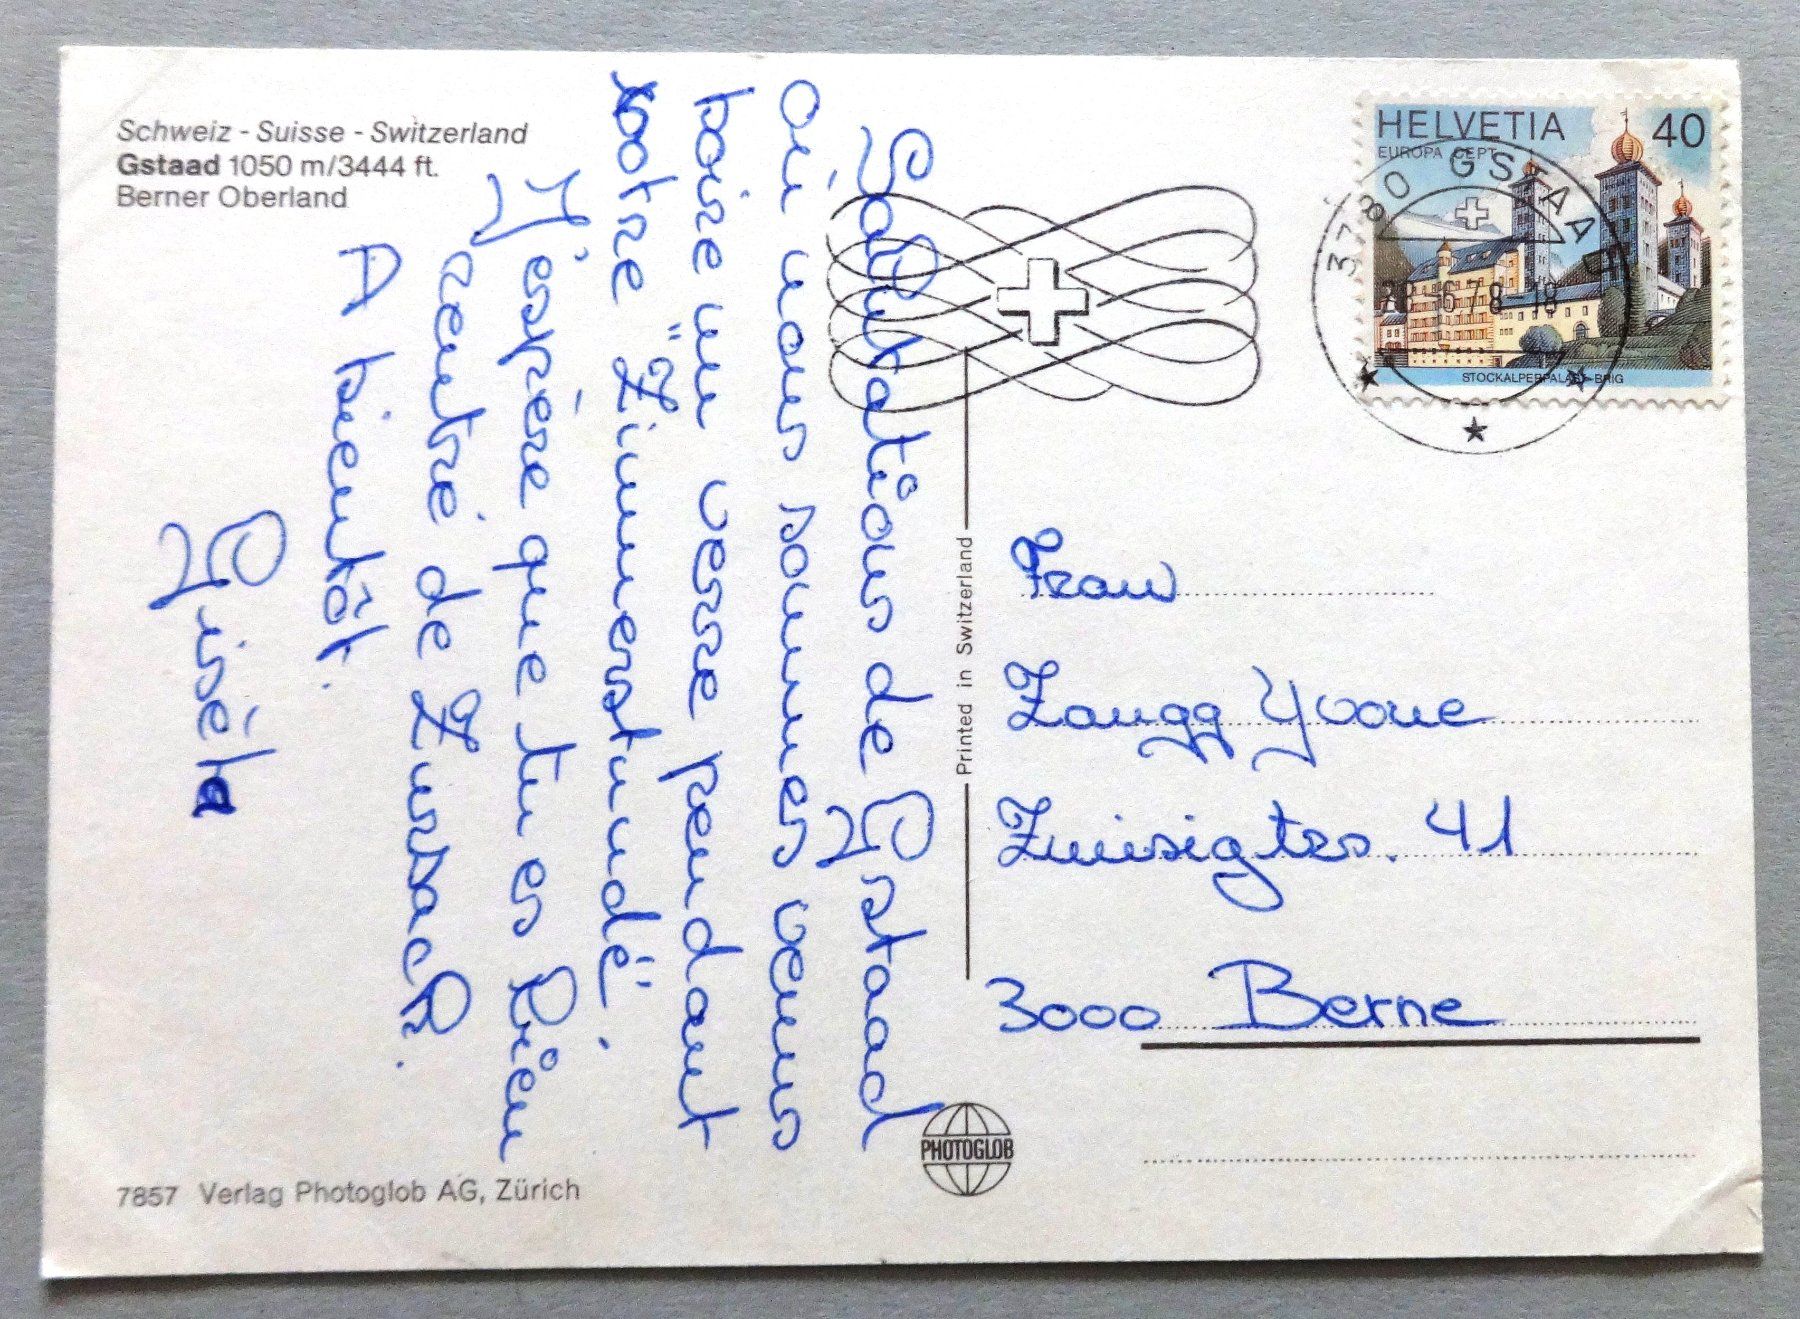 Schweiz - Suisse - Switzerland
Gstaad 1050 m/3444 ft.
Berner Oberland
Salutations de Gstaad
où nous sommes venus
boire un verre pendant
notre "Zimmerstunde".
J'espère que tu es bien
rentré de Zurzach.
A bientôt.
Gisèla
7857 Verlag Photoglob AG, Zürich
Printed in Switzerland
PHOTOGLOB
HELVETIA 40
EUROPA CEPT
STOCKALPERPALAST BRIG
3780 GSTAAD
-6.78-18
Frau
Zaugg Yvonne
41
3000 Berne